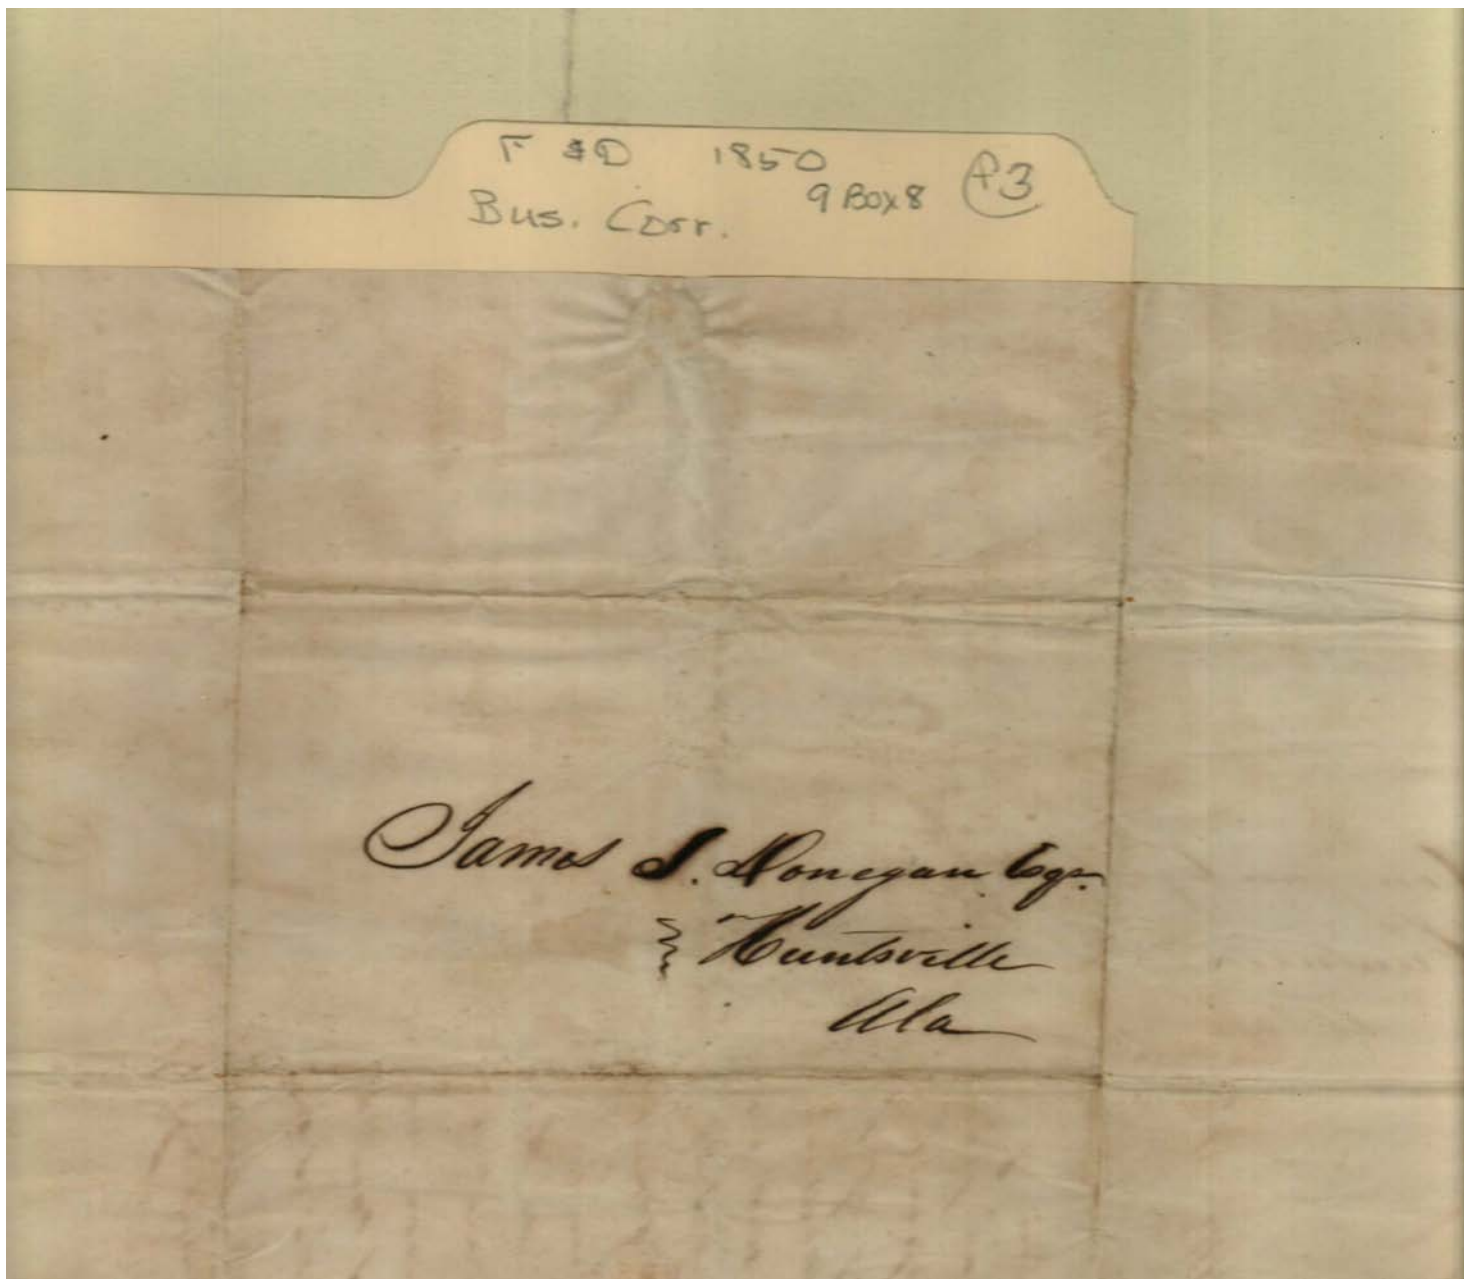 F & D 1850
9 Box 8 P3
Bus. Corr.
James J. Donegan Esqr.
Huntsville
Ala